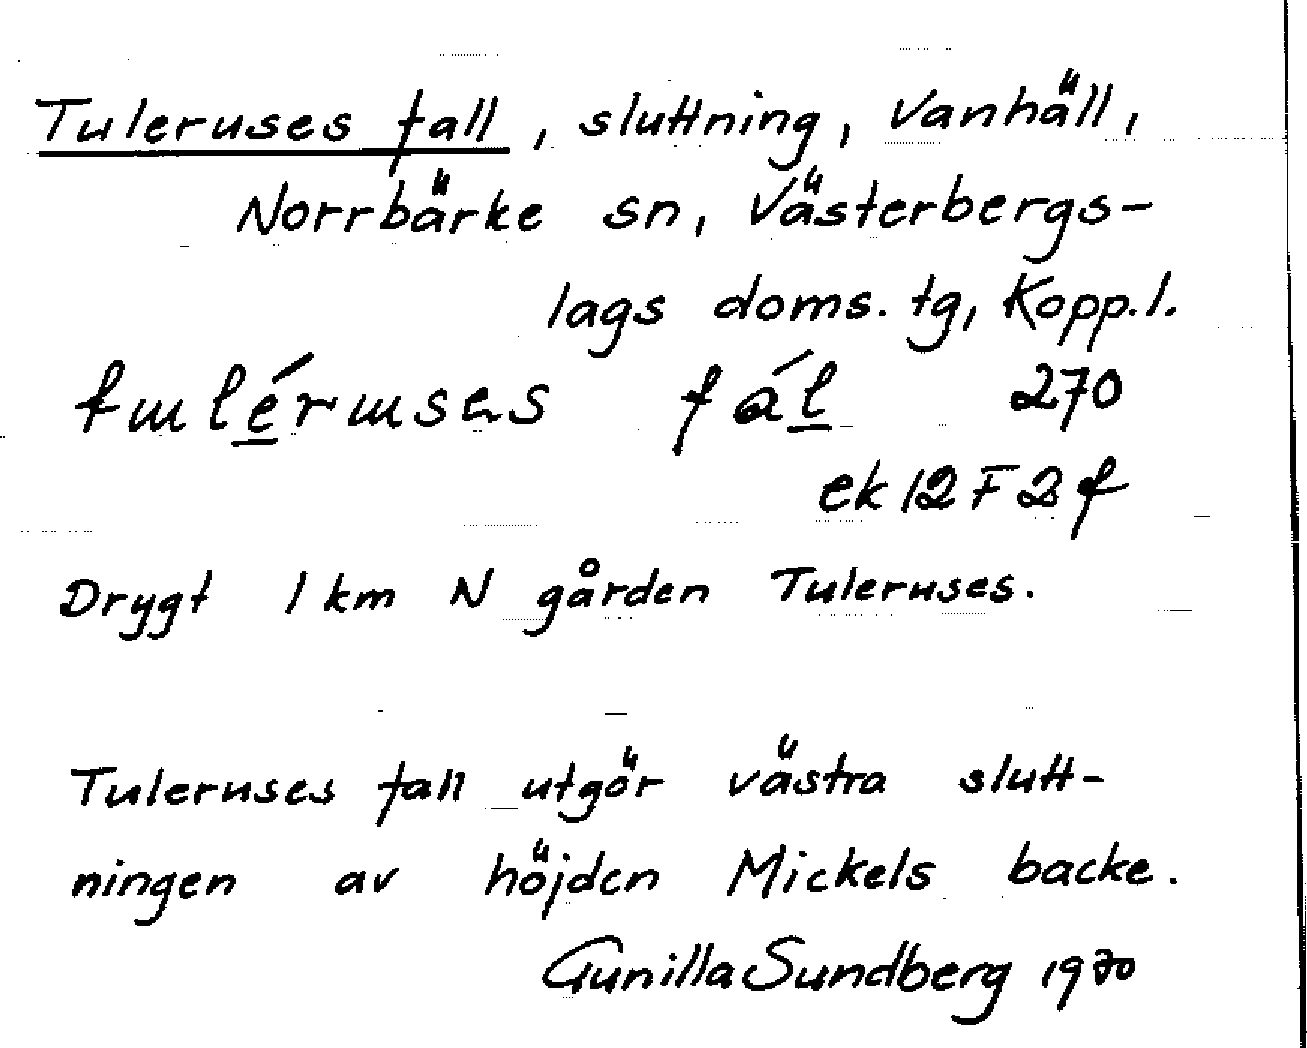 Tuleruses fall, sluttning, Vanhäll,
Norrbärke sn, Västerbergs-
lags doms. tg, Kopp.l.
fál 270
ek 12 F 2 f
Drygt 1 km N gården Tuleruses.
Tuleruses fall utgör västra slutt-
ningen av höjden Mickels backe.
Gunilla Sundberg 1970